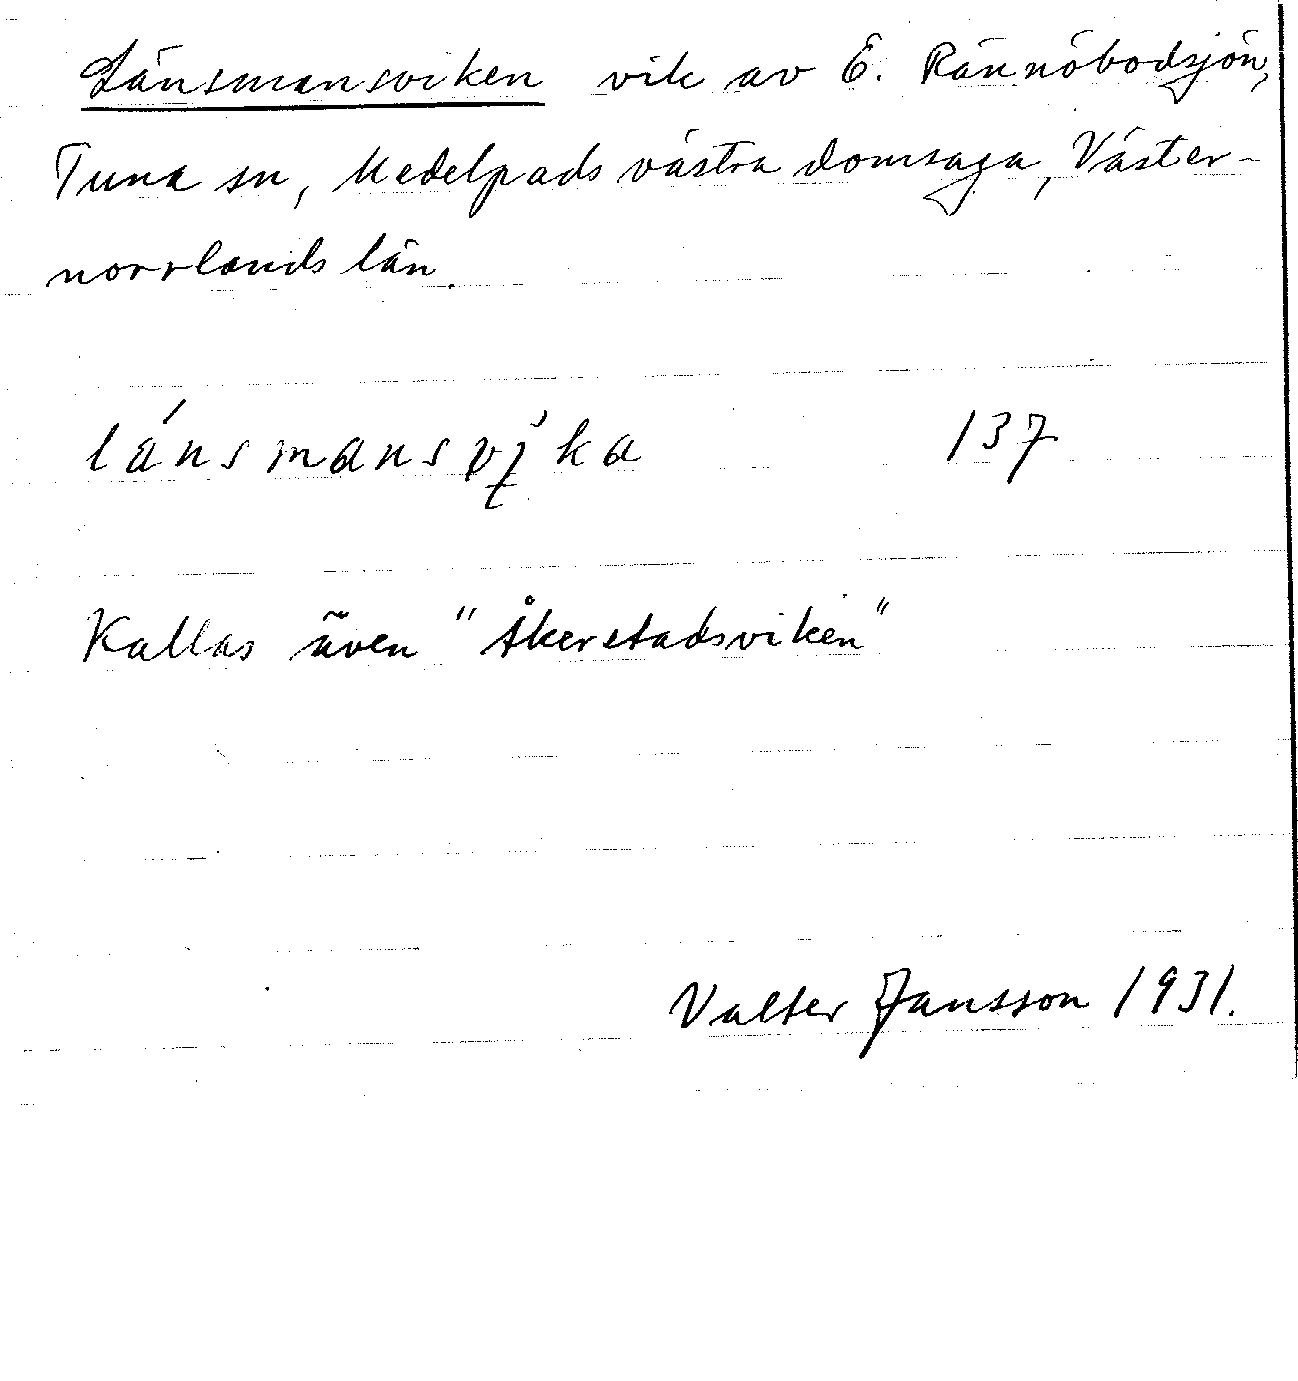 Länsmansviken vik av Ö. Rännöbodsjön,
Tuna sn, Medelpads västra domsaga, Väster-
norrlands län.
lánsmansvı̨ka 137
Kallas även "Åkerstadsviken"
Valter Jansson 1931.